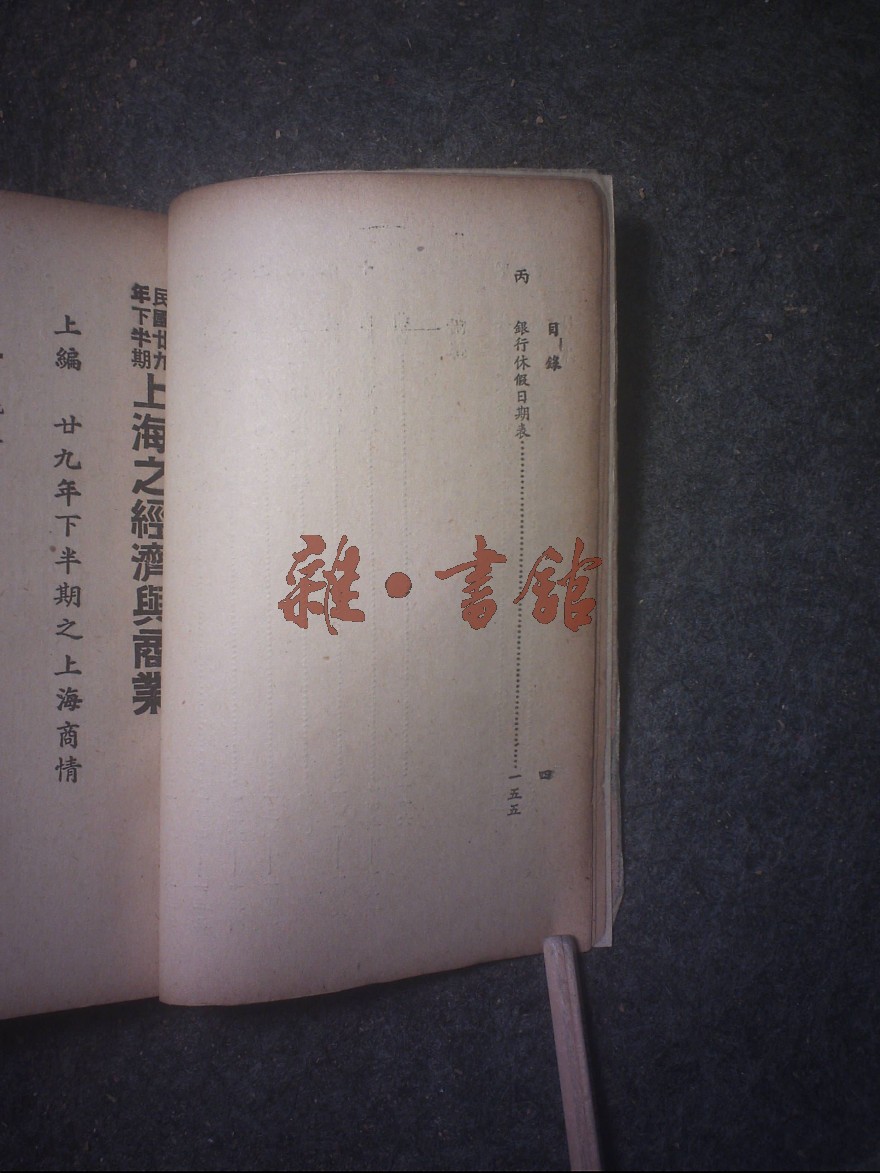 目錄
四
丙 銀行休假日期表 一五五
雜·書舘
民國廿九
年下半期
上海之經濟與商業
上編 廿九年下半期之上海商情